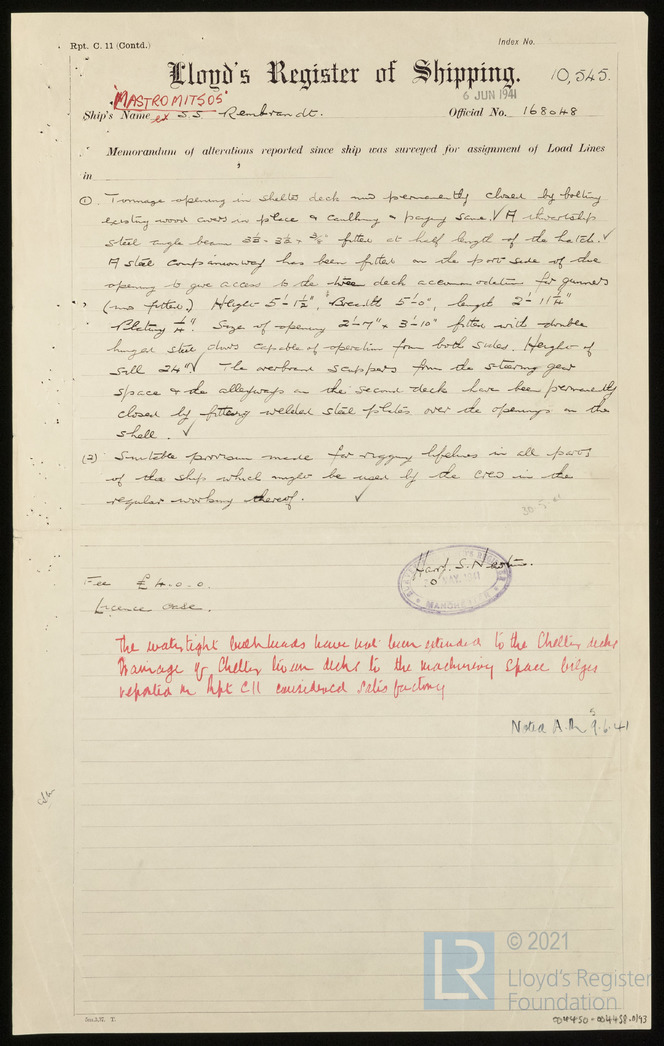 Rpt. C. 11 (Contd.)
Index No.
Lloyd's Register of Shipping.
10,545.
6 JUN 1941
"MASTROMITSOS"
Ship's Name ex S.S. Rembrandt.
Official No. 168048
Memorandum of alterations reported since ship was surveyed for assignment of Load Lines
in
① Tonnage opening in shelter deck now permanently closed by bolting
existing wood covers in place & caulking & paying same. √ A thwartship
steel angle beam 3½ × 3½ × 3/8" fitted at half length of the hatch. √
A steel companionway has been fitted on the port side of the
opening to give access to the deck accommodation for gunners
(now fitted.) Height 5'-1½", Breadth 5'-0", length 2'-11½"
Plating ¼". Size of opening 2'-7" × 3'-10" fitted with double
hinged steel doors capable of operation from both sides. Height of
sill 24" √ The overboard scuppers from the steering gear
space & the alleyways on the second deck have been permanently
closed by fitting welded steel plates over the openings in the
shell. √
(2) Suitable provision made for rigging lifelines in all parts
of the ship which might be used by the crew in the
regular working thereof. √
30.5.41
Harry. S. N
MAY 1941
MANCHESTER
Fee £4.0.0.
Licence case.
The watertight bulkheads have not been extended to the Shelter decks
Drainage of Shelter tween decks to the machinery space bilges
reported on Rpt C11 considered satisfactory
Noted A.M 9.6.41
© 2021
LR
Lloyd's Register
Foundation
004450-004458-0193